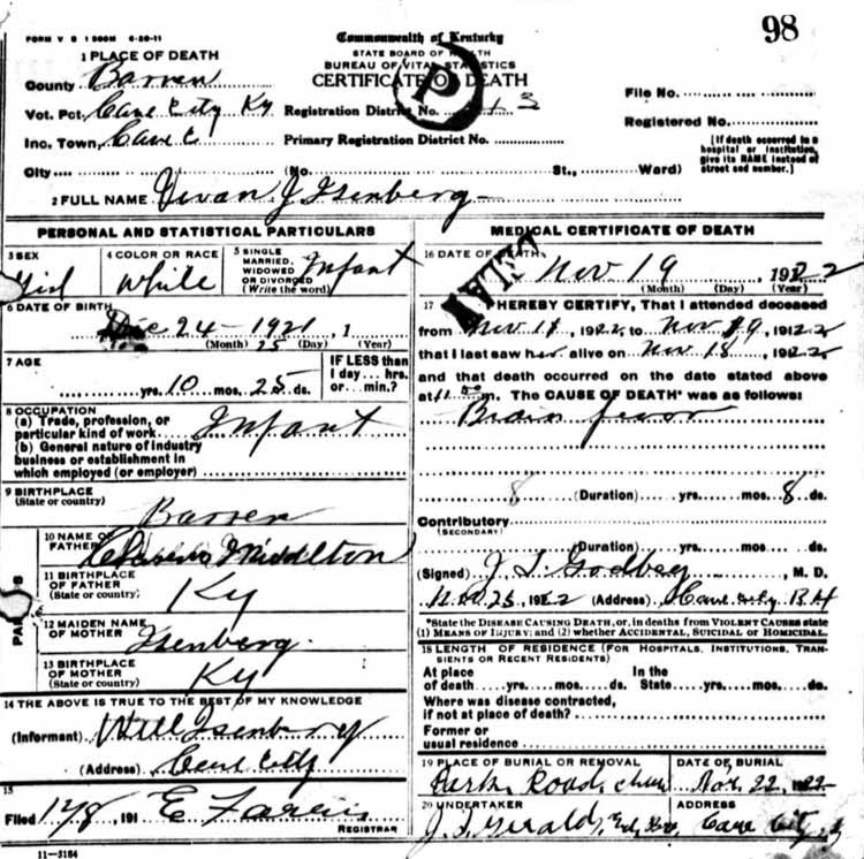 98
FORM V S 1 500M 6-20-11
Commonwealth of Kentucky
STATE BOARD OF HEALTH
BUREAU OF VITAL STATISTICS
CERTIFICATE OF DEATH
P
1 PLACE OF DEATH
County Barren
Vot. Pct. Cave City Ky
Inc. Town, Cave C
City
Registration District No. 13
Primary Registration District No.
(No. St., Ward)
File No.
Registered No.
[If death occurred in a
hospital or institution,
give its NAME instead of
street and number.]
2 FULL NAME Vivan J Isenberg
PERSONAL AND STATISTICAL PARTICULARS
3 SEX
Girl
4 COLOR OR RACE
White
5 SINGLE
MARRIED,
WIDOWED
OR DIVORCED
(Write the word)
Infant
6 DATE OF BIRTH
Dec 24 - 1921, 1
(Month) 25 (Day) (Year)
7 AGE
yrs. 10 mos. 25 ds.
IF LESS than
1 day... hrs.
or... min.?
8 OCCUPATION
(a) Trade, profession, or
particular kind of work Infant
(b) General nature of industry
business or establishment in
which employed (or employer)
9 BIRTHPLACE
(State or country)
Barren
10 NAME OF
FATHER
Middlton
11 BIRTHPLACE
OF FATHER
(State or country)
Ky
12 MAIDEN NAME
OF MOTHER
Isenberg.
13 BIRTHPLACE
OF MOTHER
(State or country)
Ky
14 THE ABOVE IS TRUE TO THE BEST OF MY KNOWLEDGE
(Informant) Will Isenberg
(Address) Cave City
15
Filed 12/8, 191 E
REGISTRAR
11-3184
MEDICAL CERTIFICATE OF DEATH
16 DATE OF DEATH
Nov 19 1922
(Month) (Day) (Year)
17 I HEREBY CERTIFY, That I attended deceased
from Nov 11, 1922, to Nov 19, 1922
that I last saw her alive on Nov 18, 1922
and that death occurred on the date stated above
at 11 m. The CAUSE OF DEATH* was as follows:
Brain fever
8 (Duration) yrs. mos. 8 ds.
Contributory
(SECONDARY)
(Duration) yrs. mos. ds.
(Signed) J. S. Godbey, M. D.
Nov 25, 1922 (Address) Cave City
*State the DISEASE CAUSING DEATH, or, in deaths from VIOLENT CAUSES state
(1) MEANS OF INJURY; and (2) whether ACCIDENTAL, SUICIDAL or HOMICIDAL.
18 LENGTH OF RESIDENCE (FOR HOSPITALS, INSTITUTIONS, TRAN-
SIENTS OR RECENT RESIDENTS)
At place In the
of death yrs. mos. ds. State yrs. mos. ds.
Where was disease contracted,
if not at place of death?
Former or
usual residence
19 PLACE OF BURIAL OR REMOVAL
Park Road
DATE OF BURIAL
Nov. 22, 1922
20 UNDERTAKER
J. T. Gerald
ADDRESS
Cave City